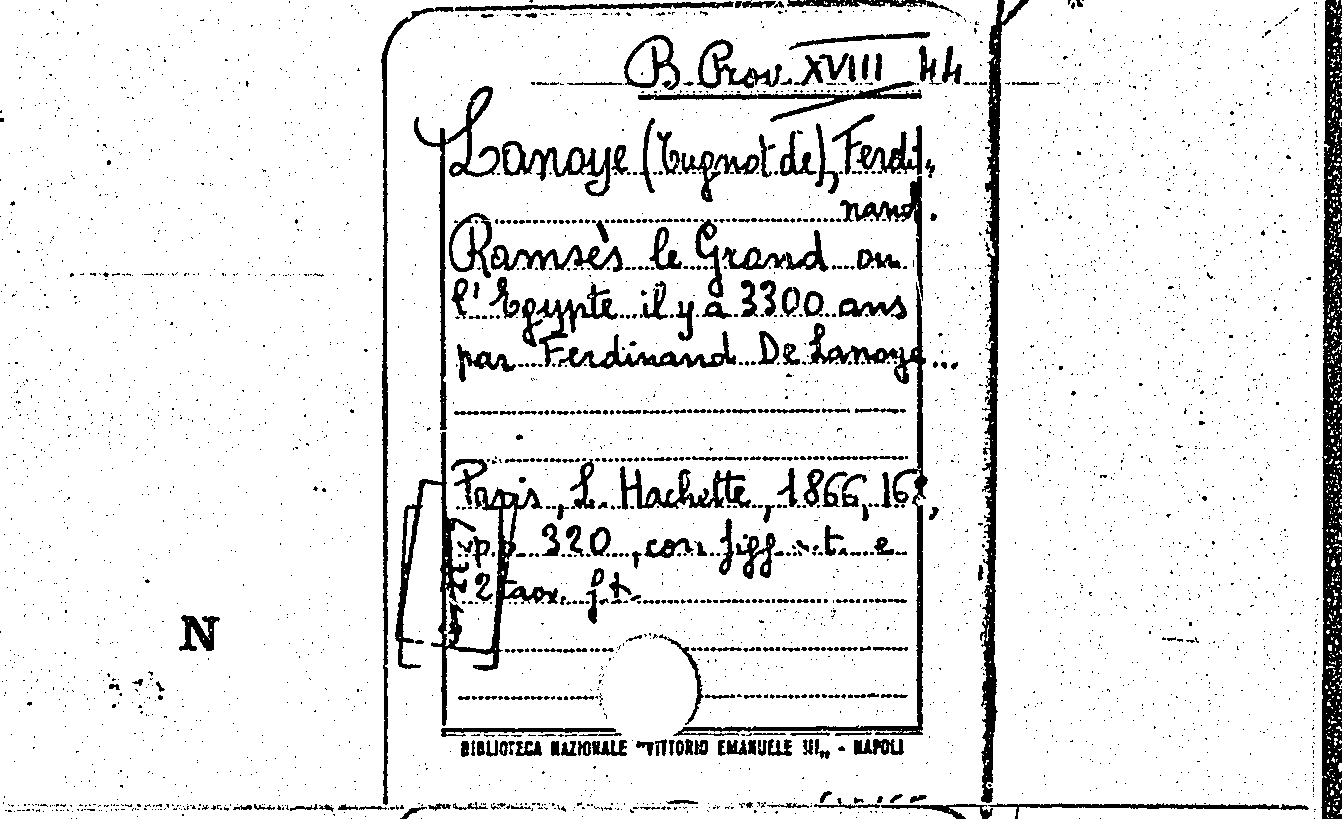 B. Prov. XVIII 44
Lanoye (Tugnot de), Ferdi-
nand.
Ramsès le Grand ou
l'Egypte il y a 3300 ans
par Ferdinand De Lanoye...
Paris, L. Hachette, 1866, 16º,
pp. 320, con figg. n. t. e
2 tav. f. t.
N
BIBLIOTECA NAZIONALE "VITTORIO EMANUELE III„ - NAPOLI